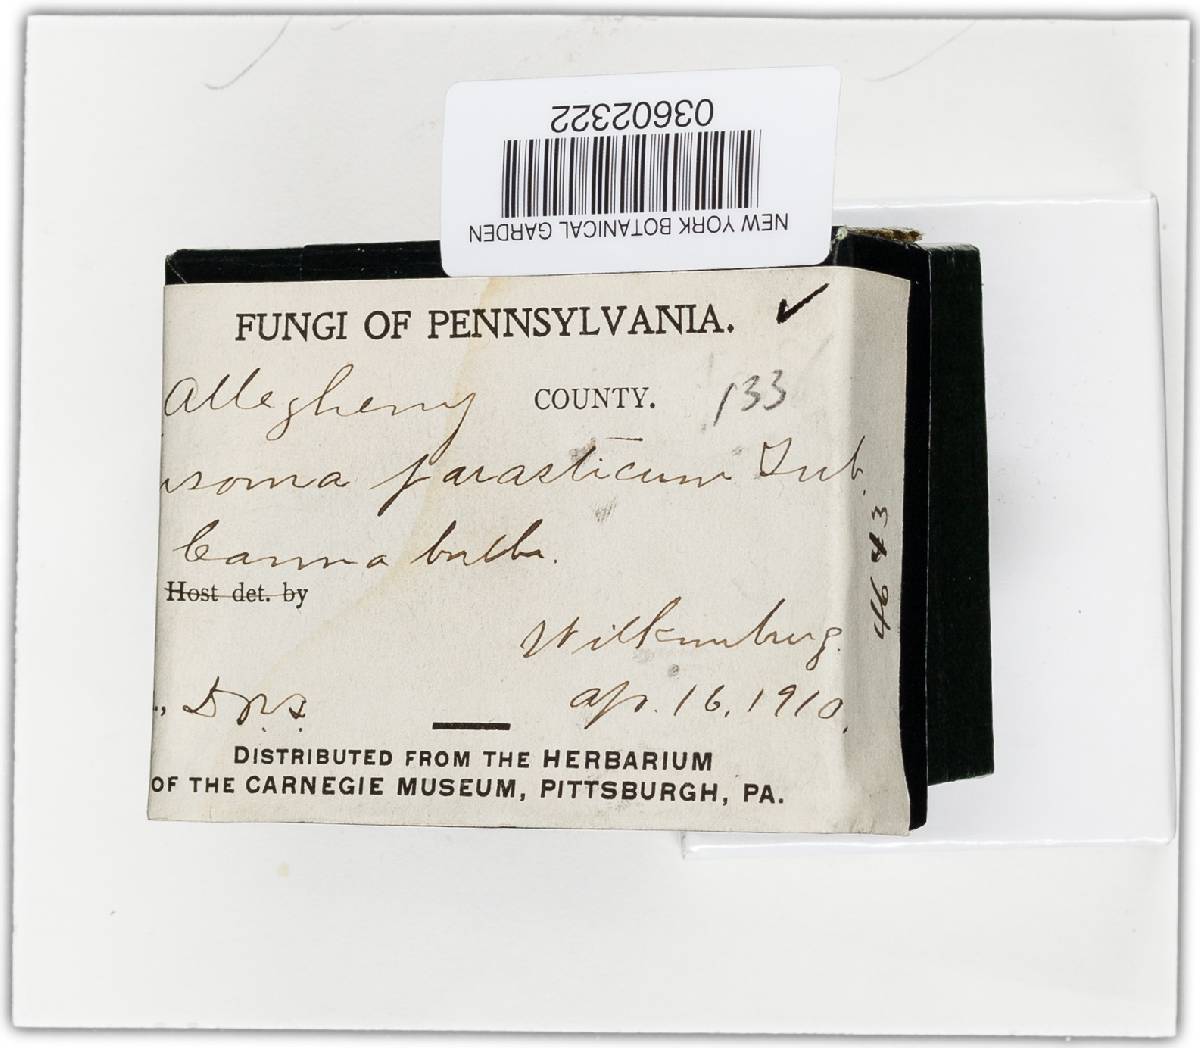 03602322
NEW YORK BOTANICAL GARDEN
FUNGI OF PENNSYLVANIA.
Allegheny COUNTY. 133
soma parasticum Tub.
Canna bulbs.
Host det. by
Wilkinsburg.
Ap. 16, 1910.
DISTRIBUTED FROM THE HERBARIUM
OF THE CARNEGIE MUSEUM, PITTSBURGH, PA.